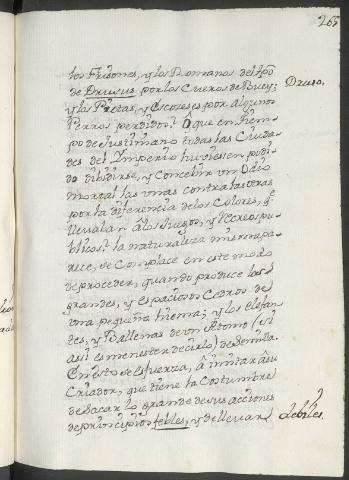 265
los Frisones, y los Romanos del tpo
de Drusus por los Cueros de Buey;
Druso.
y los Pictas, y Escoceses por algunos
Perros perdidos? Ô que en tiem-
po de Justiniano todas las Ciuda-
des del Imperio huviesen podi-
do dibidirse, y Concebir un Odio
mortal las unas contra las otras
por la diferencia de los Colores, q̃
llevaban â los Juegos, y Recreos pu-
blicos? la naturaleza misma pa-
rece, se Complace en este modo
de proceder, quando produce los
grandes, y espaciosos Cedros de
una pequeña ; y los elefan-
tes, y Ballenas de un Atomo (si
asi es menester decirlo) de semilla.
En esto se esfuerza, â imitar â su
Criador, que tiene la Costumbre
de sacar lo grande de sus acciones
de principios febles, y de llevar
debiles.